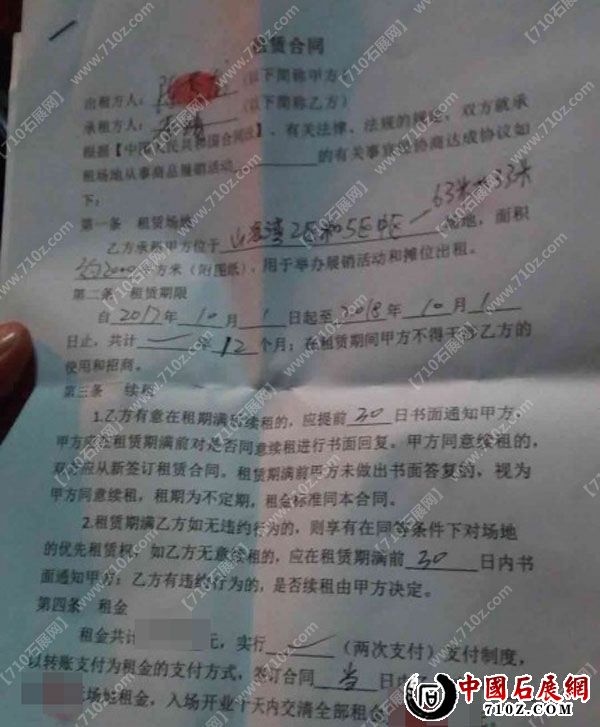 租赁合同
出租方人： （以下简称甲方）
承租方人： （以下简称乙方）
根据【中华人民共和国合同法】、有关法律、法规的规定，双方就承
租场地从事商品展销活动 的有关事宜经协商达成协议如
下：
63米×33米
第一条 租赁场地
乙方承租甲方位于 2E和5E中E 场地，面积
约2000平方米（附图纸），用于举办展销活动和摊位出租。
第二条 租赁期限
自2017年10月1日起至2018年10月1
日止，共计一年12个月；在租赁期间甲方不得干涉乙方的
使用和招商。
第三条 续租
1.乙方有意在租期满后续租的，应提前30日书面通知甲方，
甲方应在租赁期满前对是否同意续租进行书面回复。甲方同意续租的，
双方应从新签订租赁合同。租赁期满前甲方未做出书面答复的，视为
甲方同意续租，租期为不定期，租金标准同本合同。
2.租赁期满乙方如无违约行为的，则享有在同等条件下对场地
的优先租赁权，如乙方无意续租的，应在租赁期满前30日内书
面通知甲方；乙方有违约行为的，是否续租由甲方决定。
第四条 租金
租金共计 元，实行 （两次支付）支付制度，
以转账支付为租金的支付方式，签订合同当日内
场地租金，入场开业十天内交清全部租金
中國石展網
710z.com
【710石展网】
www.710z.com